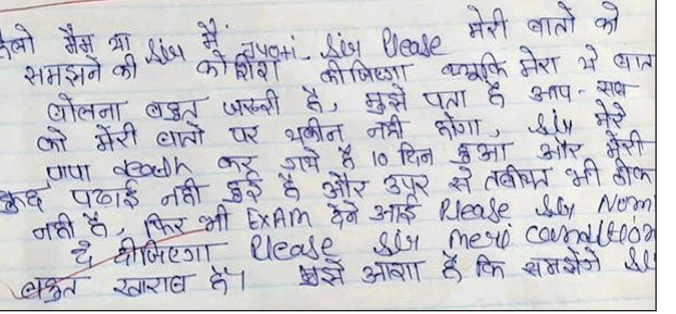 हेलो मैम या Sir मैं Jyoti. Sir Please मेरी बातो को
समझने की कोशिश कीजिएगा क्युकि मेरा ये बात
बोलना बहुत जरूरी है, मुझे पता है आप-सब
को मेरी बातो पर यकीन नही होगा, Sir मेरे
पापा death कर गये है 10 दिन हुआ और मेरी
कुछ पढाई नही हुई है और उपर से तबीयत भी ठीक
नही है, फिर भी EXAM देने आई Please Sir Nom
दे दीजिएगा Please Sir meri condition
बहुत खाराब हैं। मुझे आशा है कि समझेगे Sir